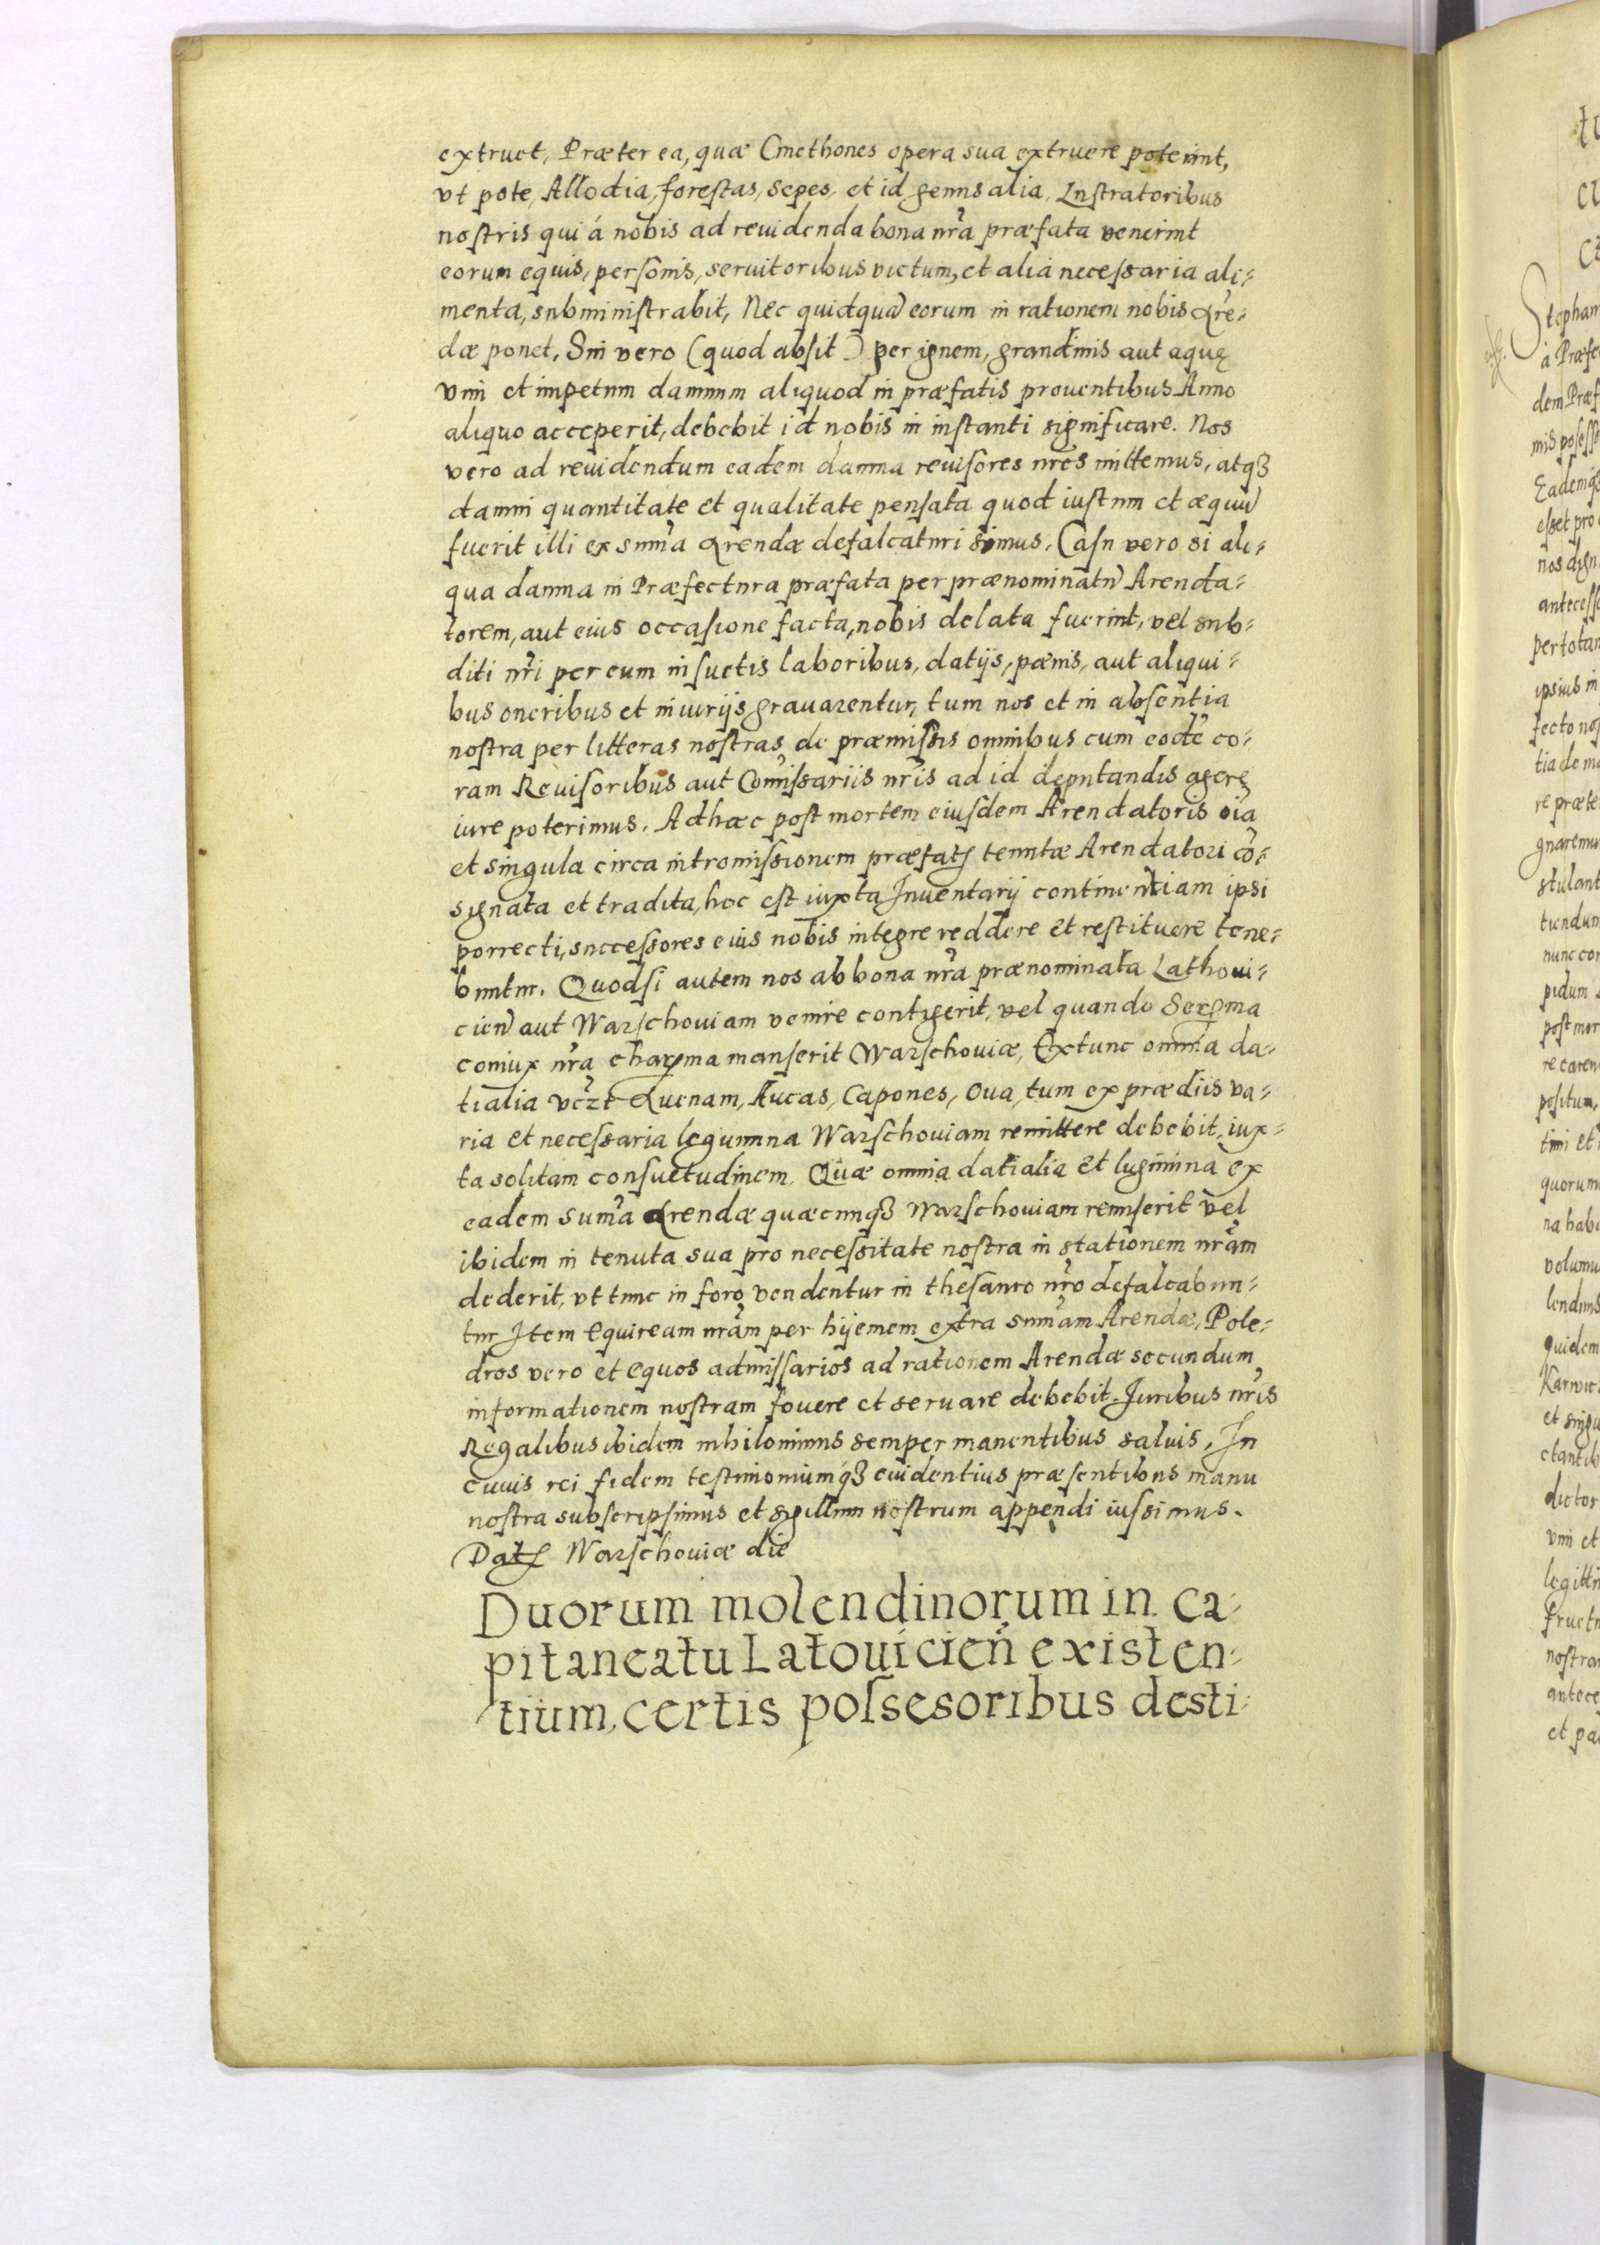 extruet, Præter ea, quæ Cmethones opera sua extruere poterint,
vt pote, Allodia, forestas, sepes, et id genus alia. Lustratoribus
nostris qui á nobis ad reuidenda bona nr̃a præfata venerint
eorum equis, personis, seruitoribus victum, et alia necessaria ali-
menta, subministrabit, Nec quidquã eorum in rationem nobis Are-
dæ ponet, Sin vero (quod absit) per ignem, grandinis aut aquę
vim et impetum damnum aliquod in præfatis prouentibus Anno
aliquo acceperit, debebit id nobis in instanti significare. Nos
vero ad reuidendum eadem damna reuisores nr̃os mittemus, atq3
damni quantitate et qualitate pensata quod iustum et æquũ
fuerit illi ex sum̃a Arendæ defalcaturi simus. Casu vero si ali-
qua damna in Præfectura præfata per prænominatũ Arenda-
torem, aut eius occasione facta, nobis delata fuerint, vel sub-
diti nr̃i per eum insuetis laboribus, datijs, pœnis, aut aliqui-
bus oneribus et iniurijs grauarentur, tum nos et in absentia
nostra per litteras nostras de præmissis omnibus cum eodẽ co-
ram Reuisoribus aut Com̃issariis nr̃is ad id deputandis agere
iure poterimus. Ad hæc post mortem eiusdem Arendatoris oĩa
et singula circa intromissionem præfatę tenutæ Arendatori cõ-
signata et tradita, hoc est iuxta Inuentarij continentiam ipsi
porrecti, successores eius nobis integre reddere et restituere tene-
buntur. Quodsi autem nos ab bona nr̃a prænominata Lathoui-
cien̄ aut Warschouiam venire contigerit, vel quando Serma
coniux nr̃a charma manserit Warschouiæ, Extunc omnia da-
tialia vcz̃t Auenam, Aucas, Capones, Oua, tum ex prædiis va-
ria et necessaria legumina Warschouiam remittere debebit, iux-
ta solitam consuetudinem. Quæ omnia datialia et lugimina ex
eadem sum̃a Arendæ quæcunq3 Warschouiam remiserit vel
ibidem in tenuta sua pro necessitate nostra in stationem nr̃am
dederit, vt tunc in foro vendentur in thesauro nr̃o defalcabun-
tur Item Equiream nr̃am per hijemem extra sum̃am Arendæ, Pole-
dros vero et equos admissarios ad rationem Arendæ secundum
informationem nostram fouere et seruare debebit. Iuribus nr̃is
Regalibus ibidem nihilominus semper manentibus saluis, In
cuius rei fidem testimoniumq́3 euidentius præsentibus manu
nostra subscripsimus et sigillum nostrum appendi iussimus.
Datę Warschouiæ die
Duorum molendinorum in ca-
pitaneatu Latouícien̄ existen-
tium, certis possesoribus desti-